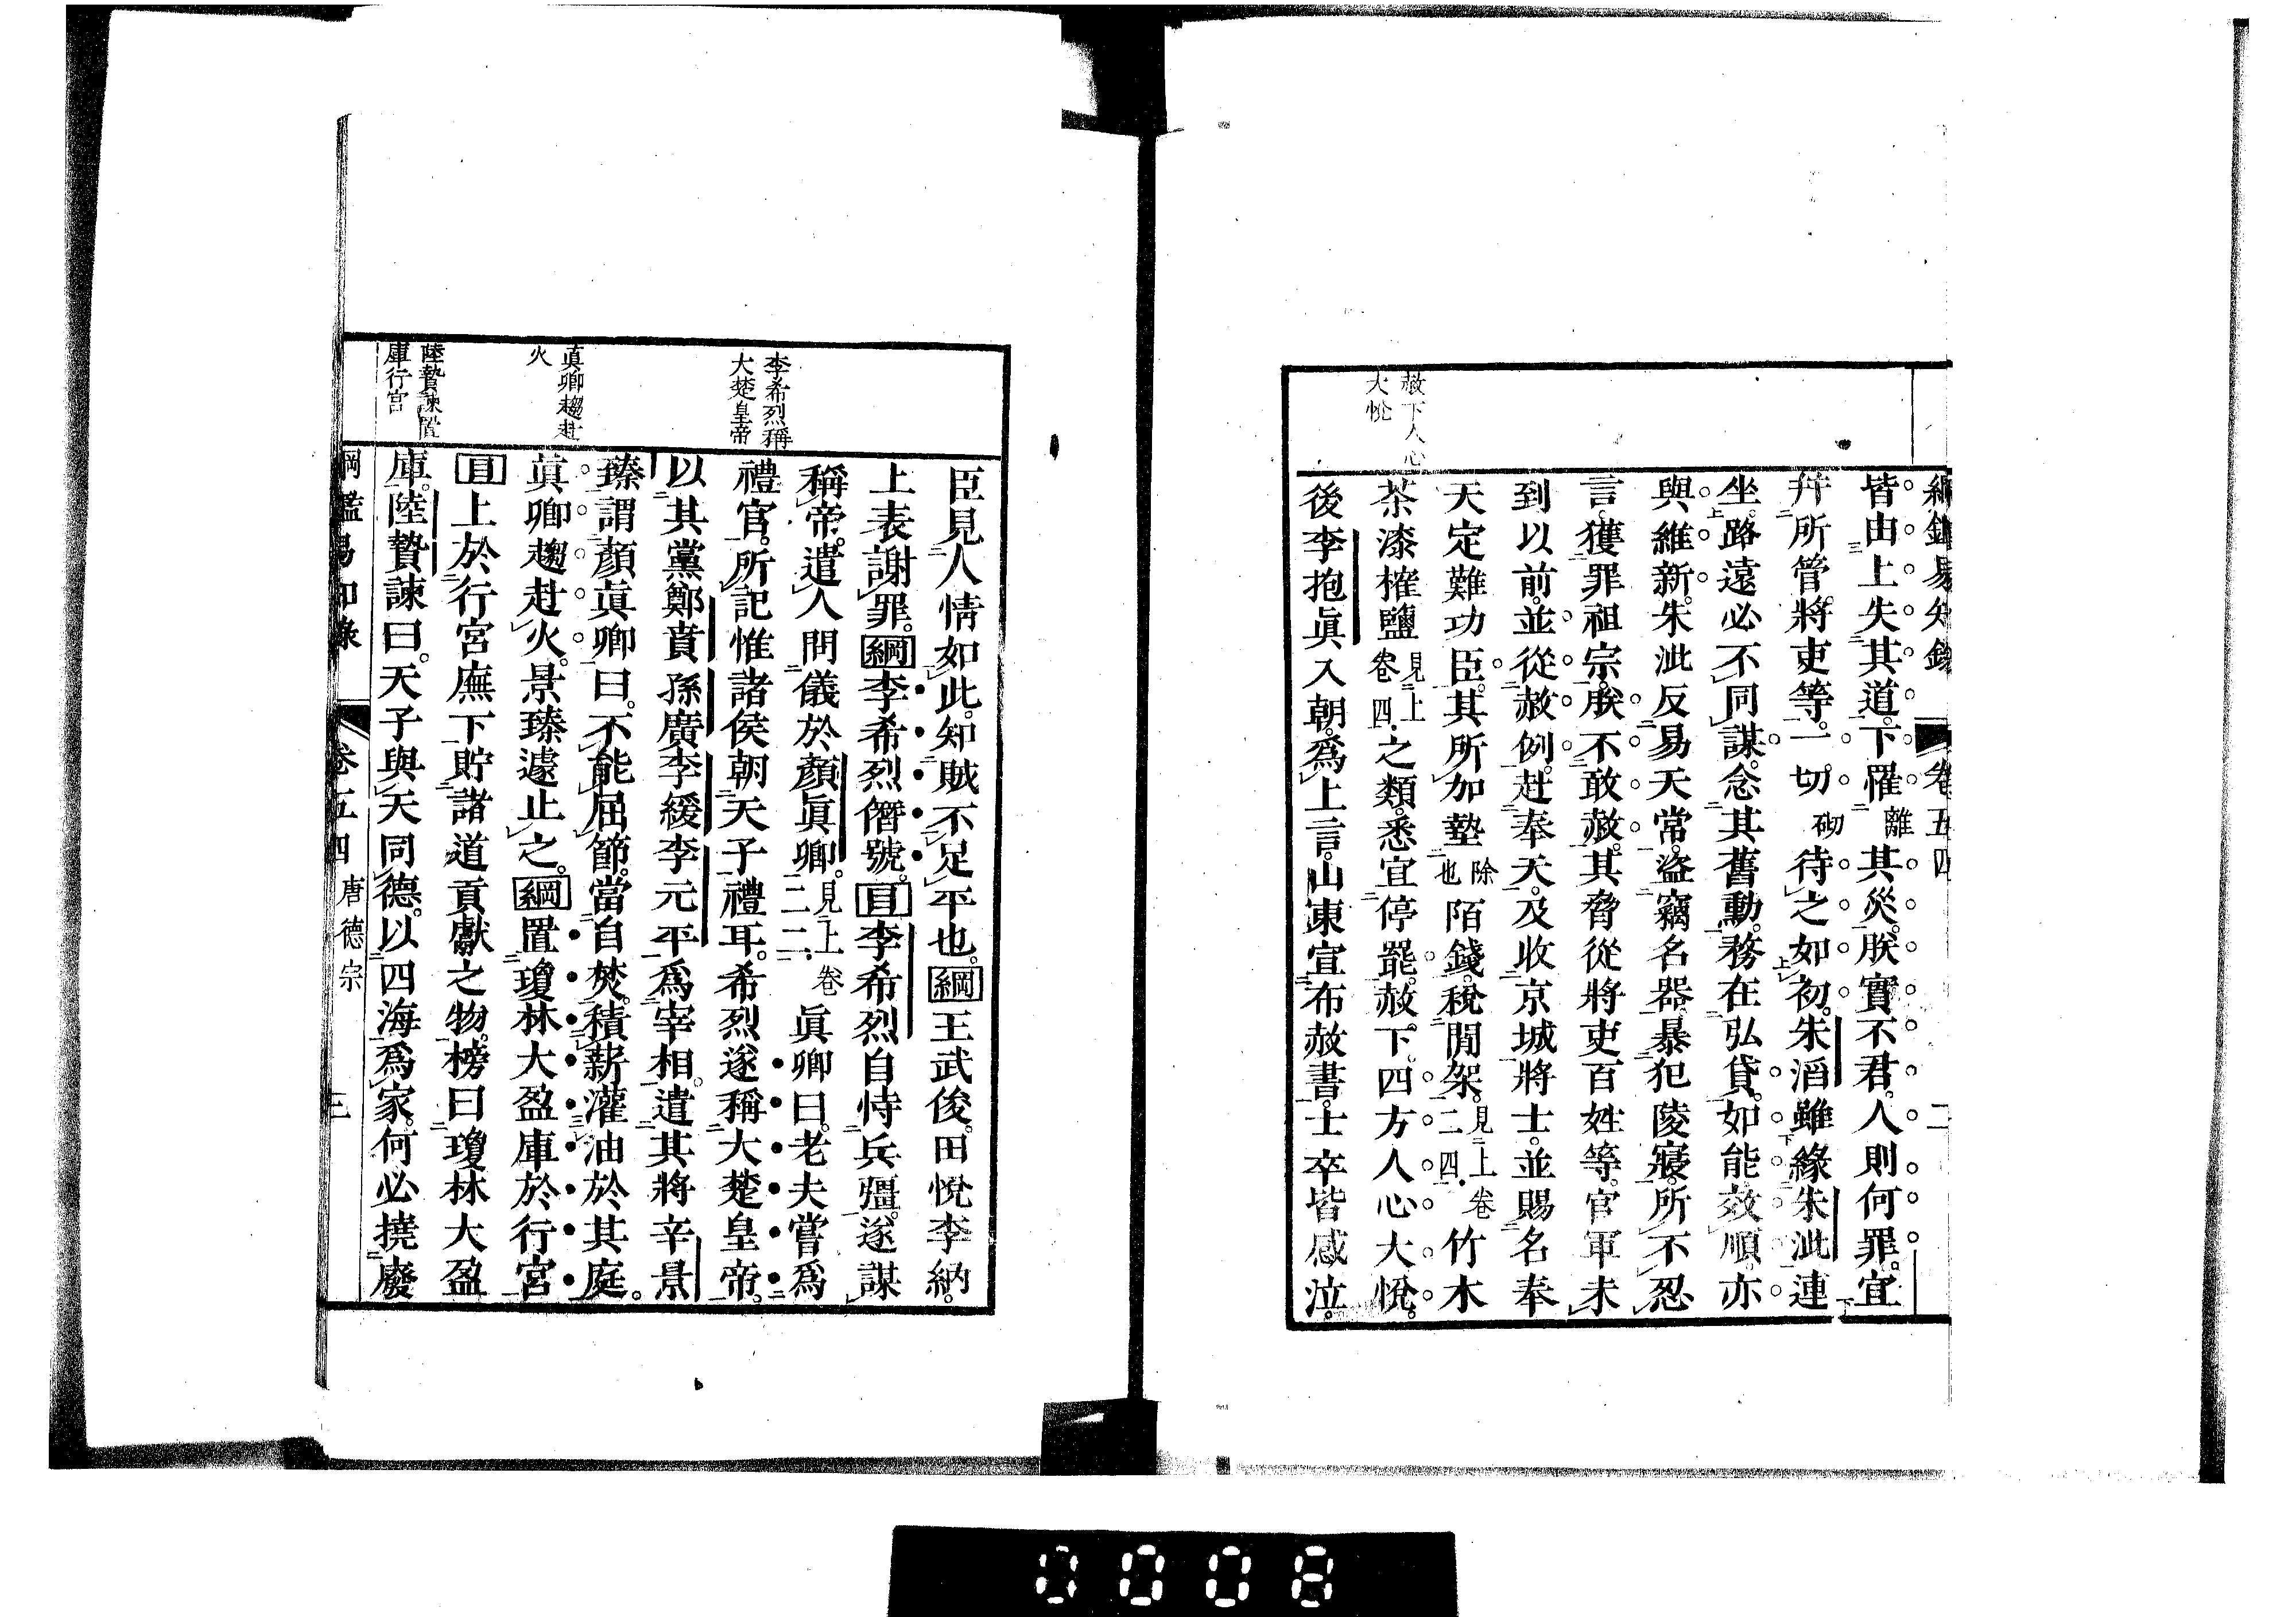 綱鑑易知錄 卷五四 二
赦下人心
大悅
皆由上失其道。下罹離其災。朕實不君。人則何罪。宜
幷所管。將吏等。一切砌待之如初。朱滔雖緣朱泚連
坐。路遠必不同謀。念其舊勳。務在弘貸。如能效順。亦
與維新。朱泚反易天常。盜竊名器。暴犯陵寢。所不忍
言。獲罪祖宗。朕不敢赦。其脅從將吏百姓等。官軍未
到以前。並從赦例。赴奉天。及收京城將士。並賜名奉
天定難功臣。其所加墊除也陌錢。稅閒架。見上卷二四.竹木
茶漆榷鹽見上卷四.之類。悉宜停罷。赦下。四方人心大悅。
後李抱眞入朝。爲上言。山東宣布赦書。士卒皆感泣。
李希烈稱
大楚皇帝
眞卿趨赴
火
陸贄諫置
庫行宮
臣見人情如此。知賊不足平也。綱王武俊。田悅李納。
上表謝罪。綱李希烈僭號。目李希烈自恃兵彊。遂謀
稱帝。遣人問儀於顏眞卿。見上卷二二.眞卿曰。老夫嘗爲
禮官。所記惟諸侯朝天子禮耳。希烈遂稱大楚皇帝。
以其黨鄭賁孫廣李緩李元平爲宰相。遣其將辛景
臻謂顏眞卿曰。不能屈節。當自焚。積薪灌油於其庭。
眞卿趨赴火。景臻遽止之。綱置瓊林大盈庫於行宮
目上於行宮廡下貯諸道貢獻之物。榜曰瓊林大盈
庫。陸贄諫曰。天子與天同德。以四海爲家。何必撓廢
綱鑑易知錄 卷五四 唐德宗 三
0008